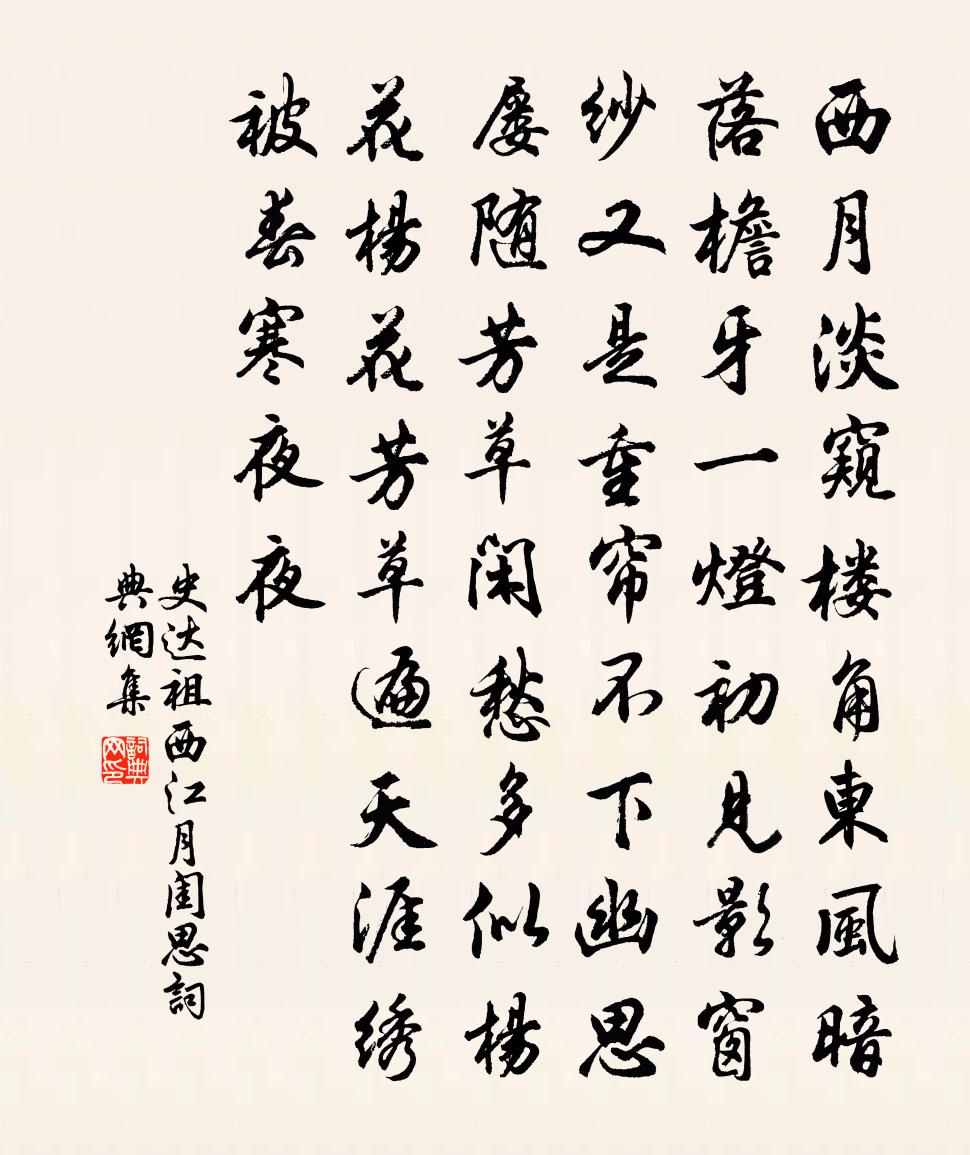 西月淡窺楼角東風暗
落檐牙一燈初見影窗
紗又是重帘不下幽思
屡随芳草閑愁多似楊
花楊花芳草遍天涯绣
被春寒夜夜
史达祖西江月闺思詞
典網集
詞典
网印